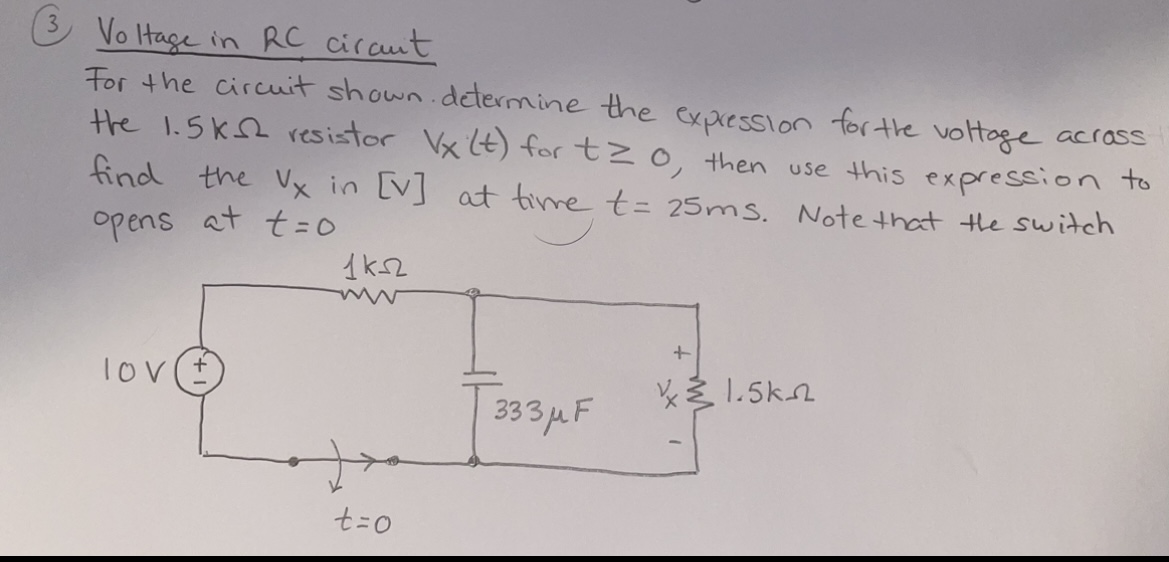 3 Voltage in RC circuit
For the circuit shown. determine the expression for the voltage across
the 1.5kΩ resistor Vx(t) for t ≥ 0, then use this expression to
find the Vx in [V] at time t = 25ms. Note that the switch
opens at t=0
1kΩ
10V
+
-
333μF
+
Vx
-
1.5kΩ
t=0